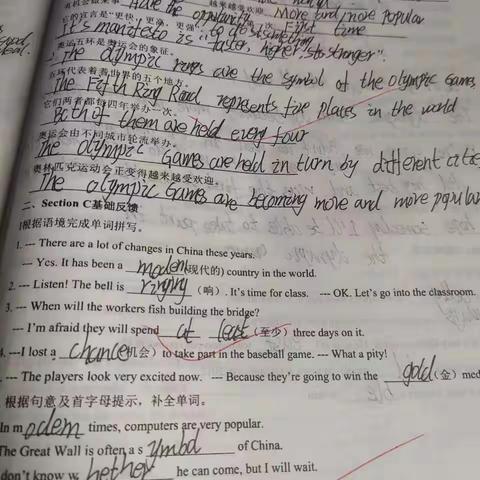 越来越受欢迎 More and more popular
Have the opportunity
它的宣言是"更快, 更高, 更强" to do sth First time
It's manifesto is "faster, higher, stronger".
奥运五环是奥运会的象征。
The olympic rings are the symbol of the olympic Games
五环代表着世界的五个地方。
The Fifth Ring Road represents five places in the world
它们两者都每四年举办一次。
Both of them are held every four
奥运会由不同城市轮流举办。
The olympic Games are held in turn by different cities
奥林匹克运动会正变得越来越受欢迎。
The olympic Games are becoming more and more popular
二、Section C基础反馈
根据语境完成单词拼写。
1. --- There are a lot of changes in China these years.
--- Yes. It has been a modern(现代的) country in the world.
2. --- Listen! The bell is ringing (响). It's time for class. --- OK. Let's go into the classroom.
3. --- When will the workers fish building the bridge?
--- I'm afraid they will spend at least (至少) three days on it.
4. ---I lost a chance(机会) to take part in the baseball game. --- What a pity!
--- The players look very excited now. --- Because they're going to win the gold (金) med
根据句意及首字母提示，补全单词。
In m odern times, computers are very popular.
The Great Wall is often a s ymbol of China.
don't know w hether he can come, but I will wait.